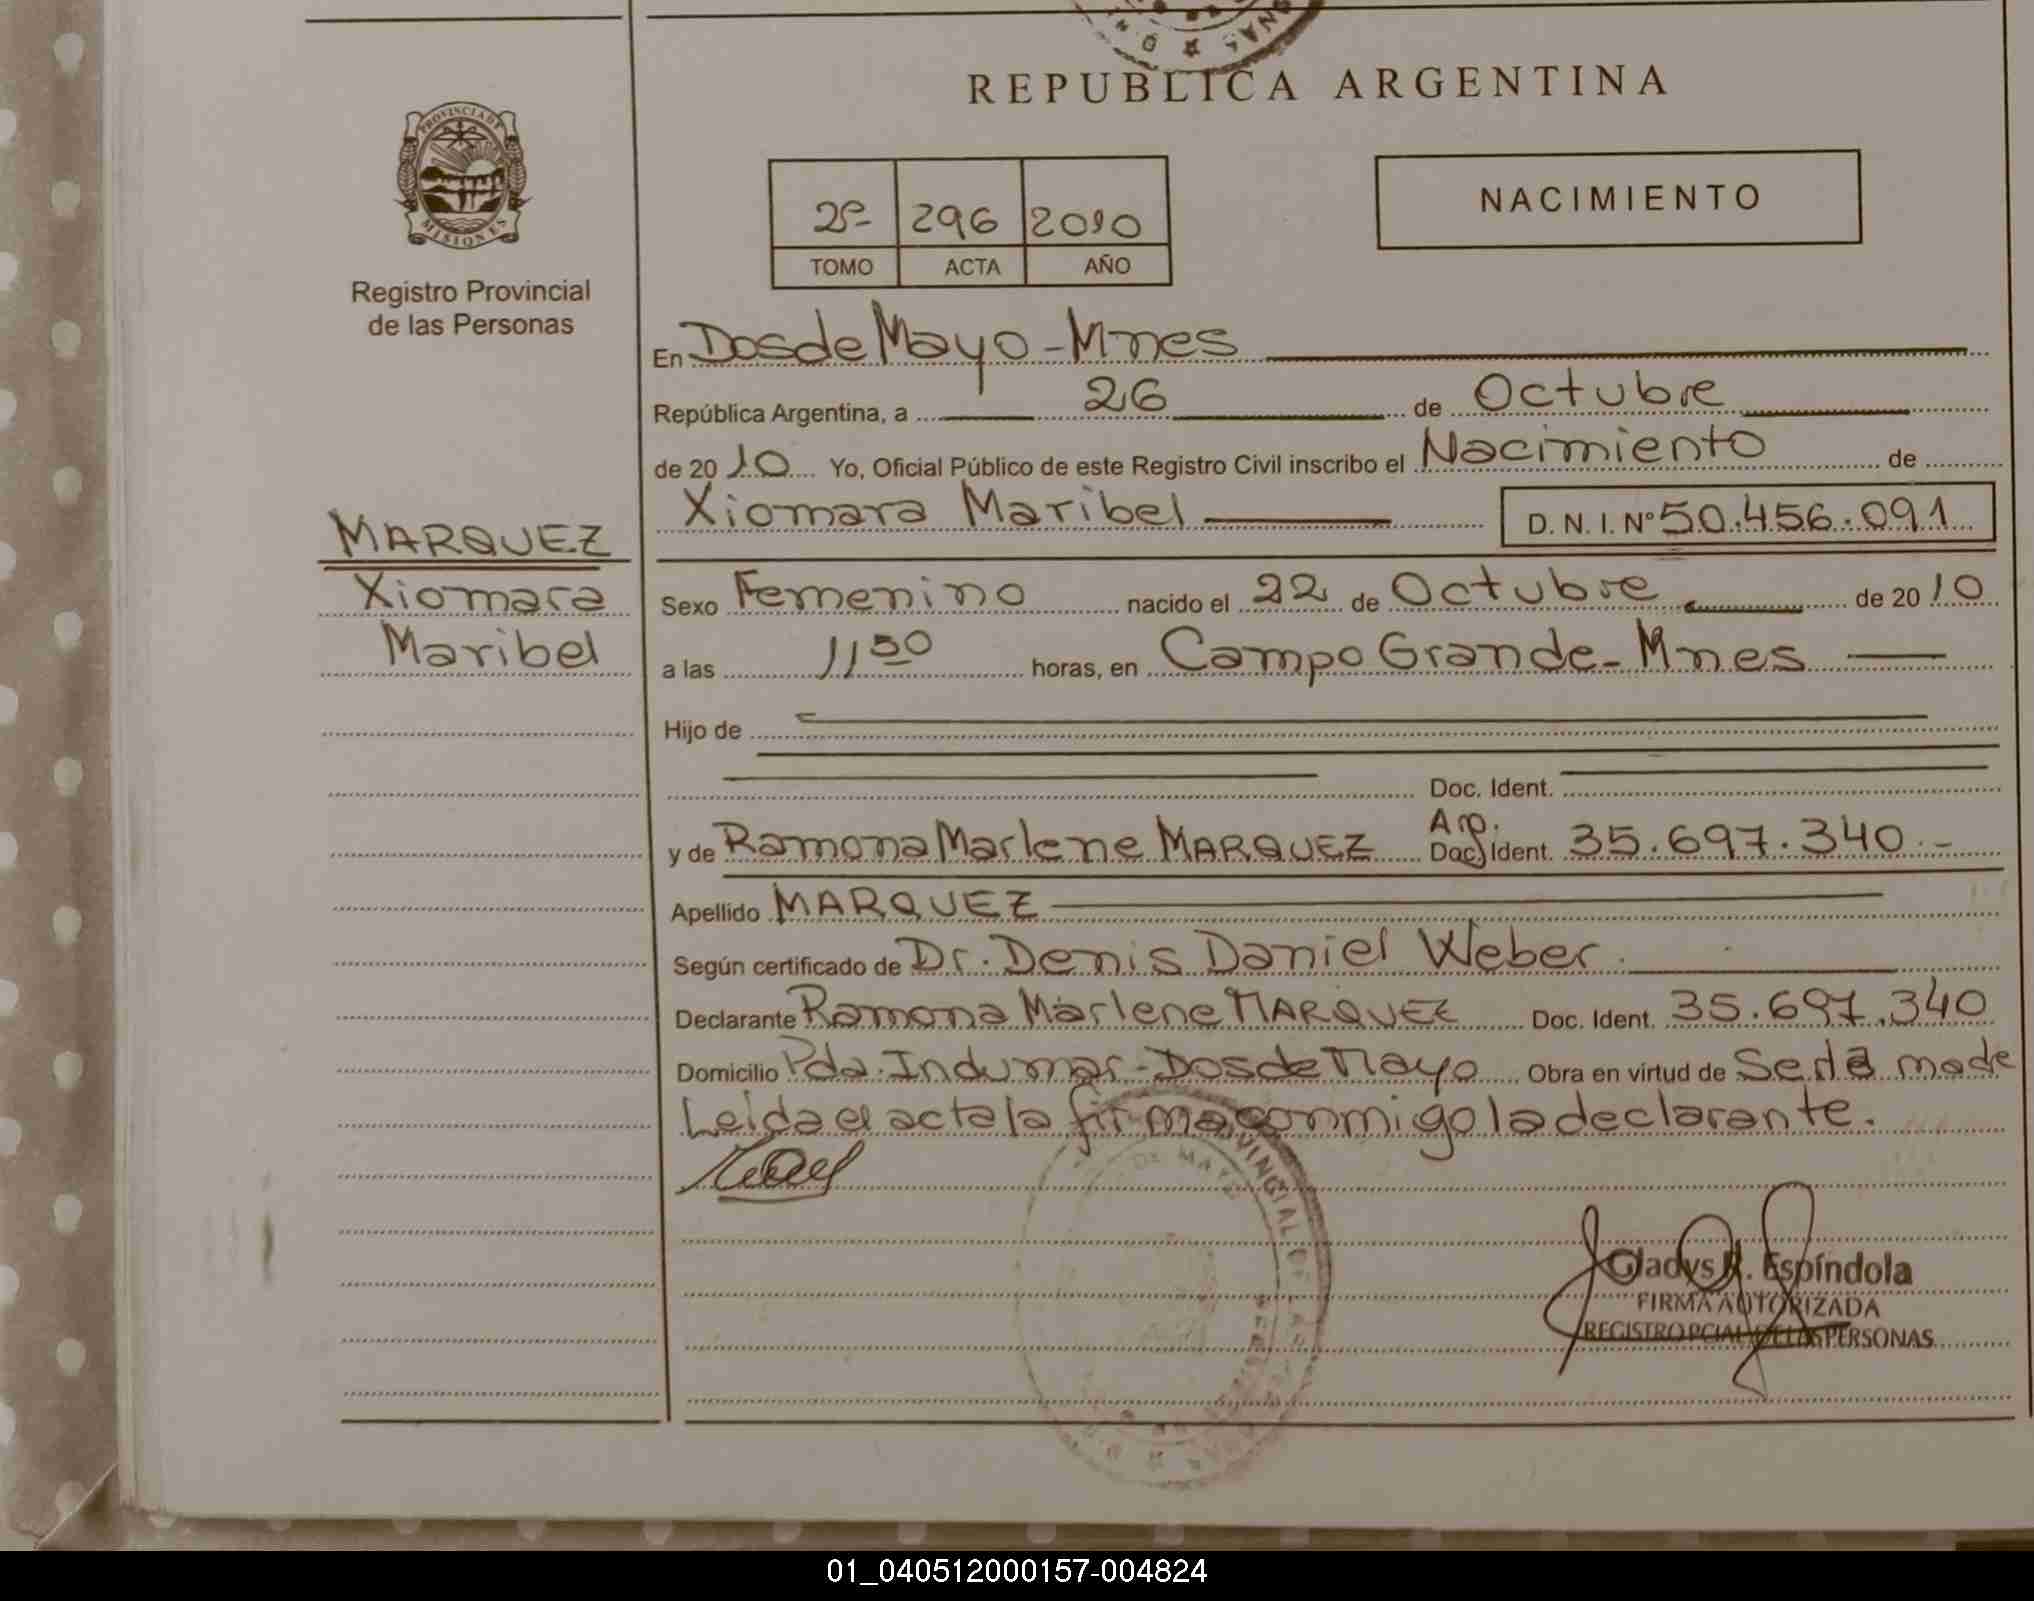 REPUBLICA ARGENTINA
PROVINCIA DE
MISIONES
Registro Provincial
de las Personas
2º 296 2010
TOMO ACTA AÑO
NACIMIENTO
En Dos de Mayo - Mnes
República Argentina, a 26 de Octubre
de 2010 Yo, Oficial Público de este Registro Civil inscribo el Nacimiento de
Xiomara Maribel D. N. I. Nº 50.456.091
MARQUEZ
Xiomara
Maribel
Sexo Femenino nacido el 22 de Octubre de 2010
a las horas, en Campo Grande - Mnes
Hijo de
Doc. Ident.
y de Ramona Marlene MARQUEZ Arg. Doc. Ident. 35.697.340.-
Apellido MARQUEZ
Según certificado de Dr. Denis Daniel Weber.
Declarante Ramona Marlene MARQUEZ Doc. Ident. 35.697.340
Domicilio Pda. Indumar - Dos de Mayo Obra en virtud de Ser la made
Leida el acta la firma conmigo la declarante.
DE MAYO
Gladys R. Espíndola
FIRMA AUTORIZADA
REGISTRO PCIAL DE LAS PERSONAS
01_040512000157-004824